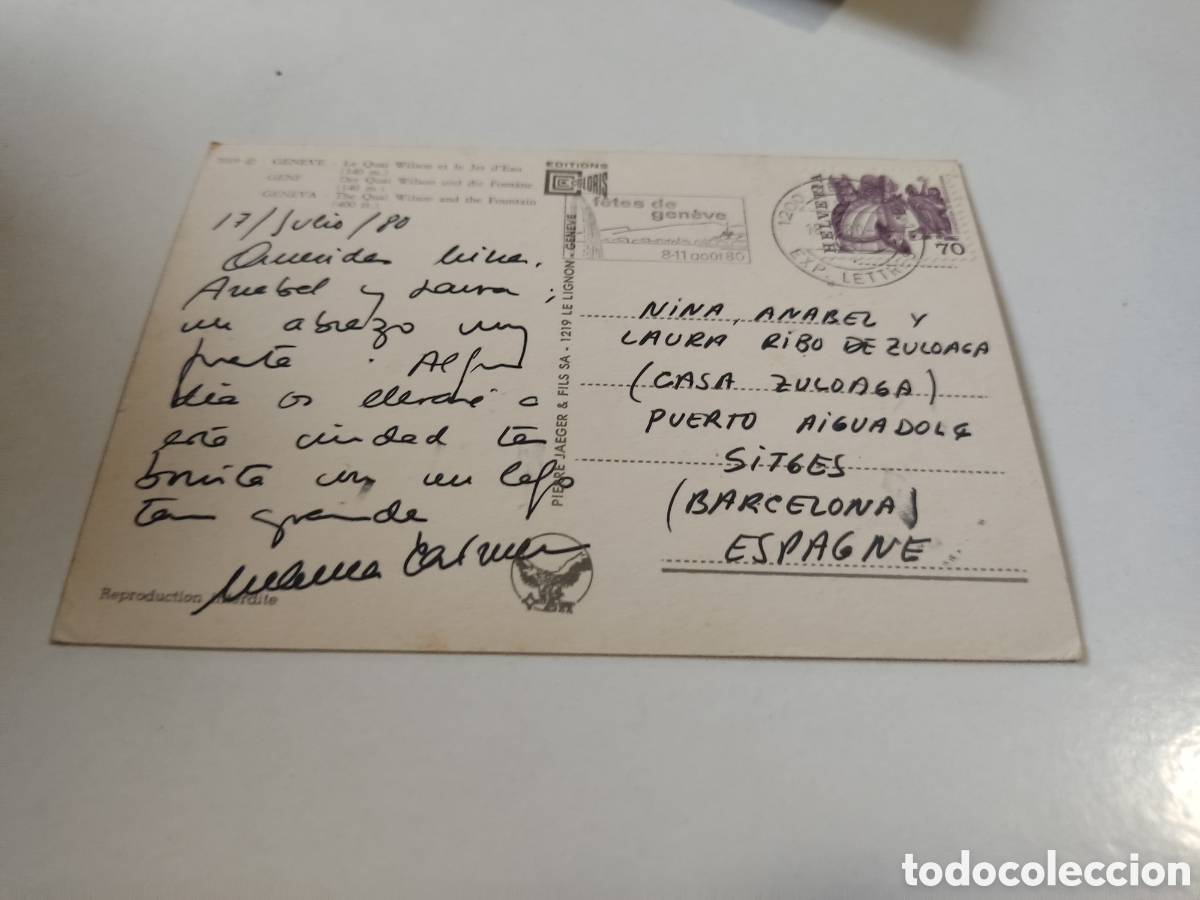 GENEVE - Le Quai Wilson et le Jet d'Eau
(140 m.)
GENF Der Quai Wilson und die Fontäne
(140 m.)
GENEVA - The Quai Wilson and the Fountain
(400 ft.)
17/Julio/80
Queridas Nina,
Anabel y Laura;
un abrazo muy
fuerte. Algún
día os llevaré a
esta ciudad tan
bonita con un lago
tan grande
Carmen
Reproduction interdite
EDITIONS
COLORIS
PIERRE JAEGER & FILS SA - 1219 LE LIGNON - GENÈVE
fêtes de
genève
8-11 août 80
1200
EXP. LETTR
HELVETIA
70
NINA, ANABEL Y
LAURA RIBO DE ZULOAGA
(CASA ZULOAGA)
PUERTO AIGUADOLÇ
SITGES
(BARCELONA)
ESPAGNE
todocoleccion